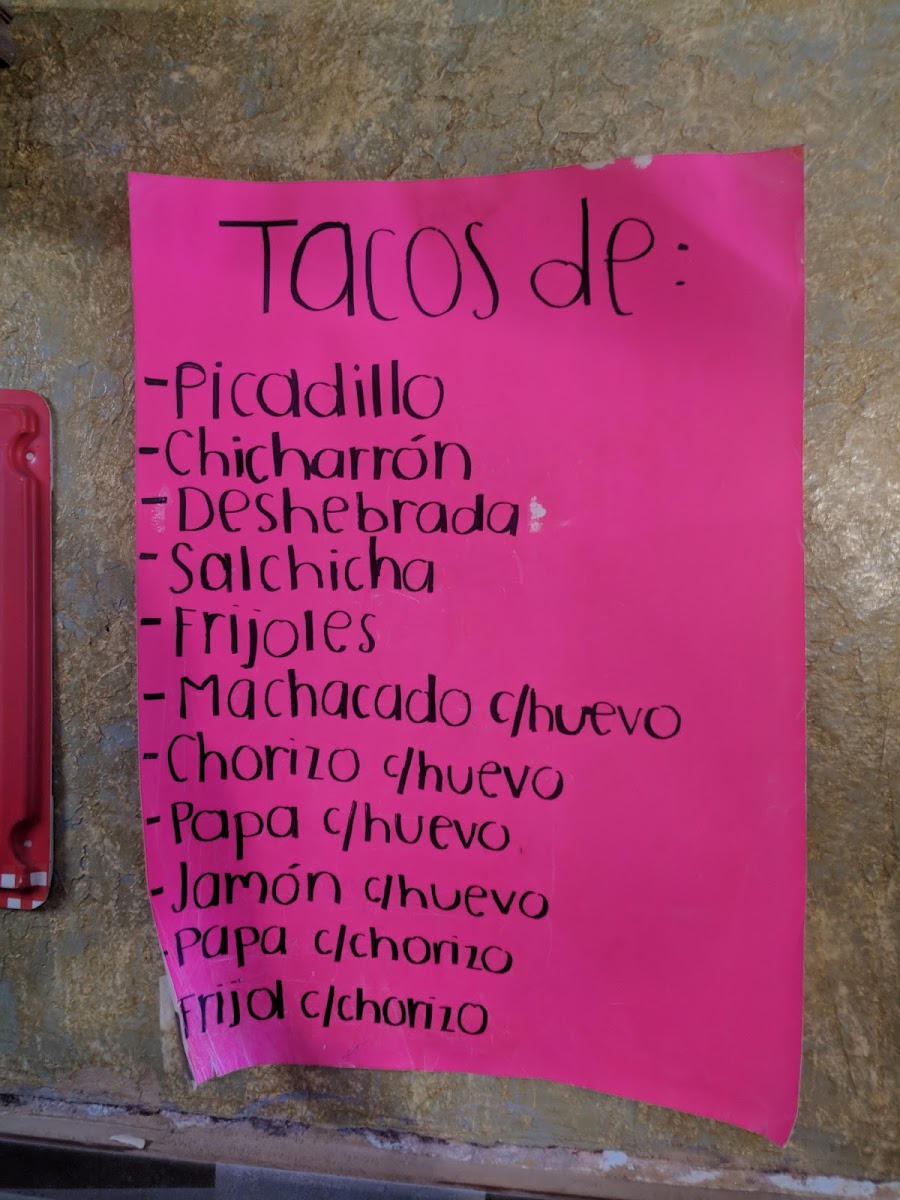 Tacos de:
-Picadillo
-Chicharrón
-Deshebrada
-Salchicha
-Frijoles
-Machacado c/huevo
-Chorizo c/huevo
-Papa c/huevo
-Jamón c/huevo
-Papa c/chorizo
Frijol c/chorizo